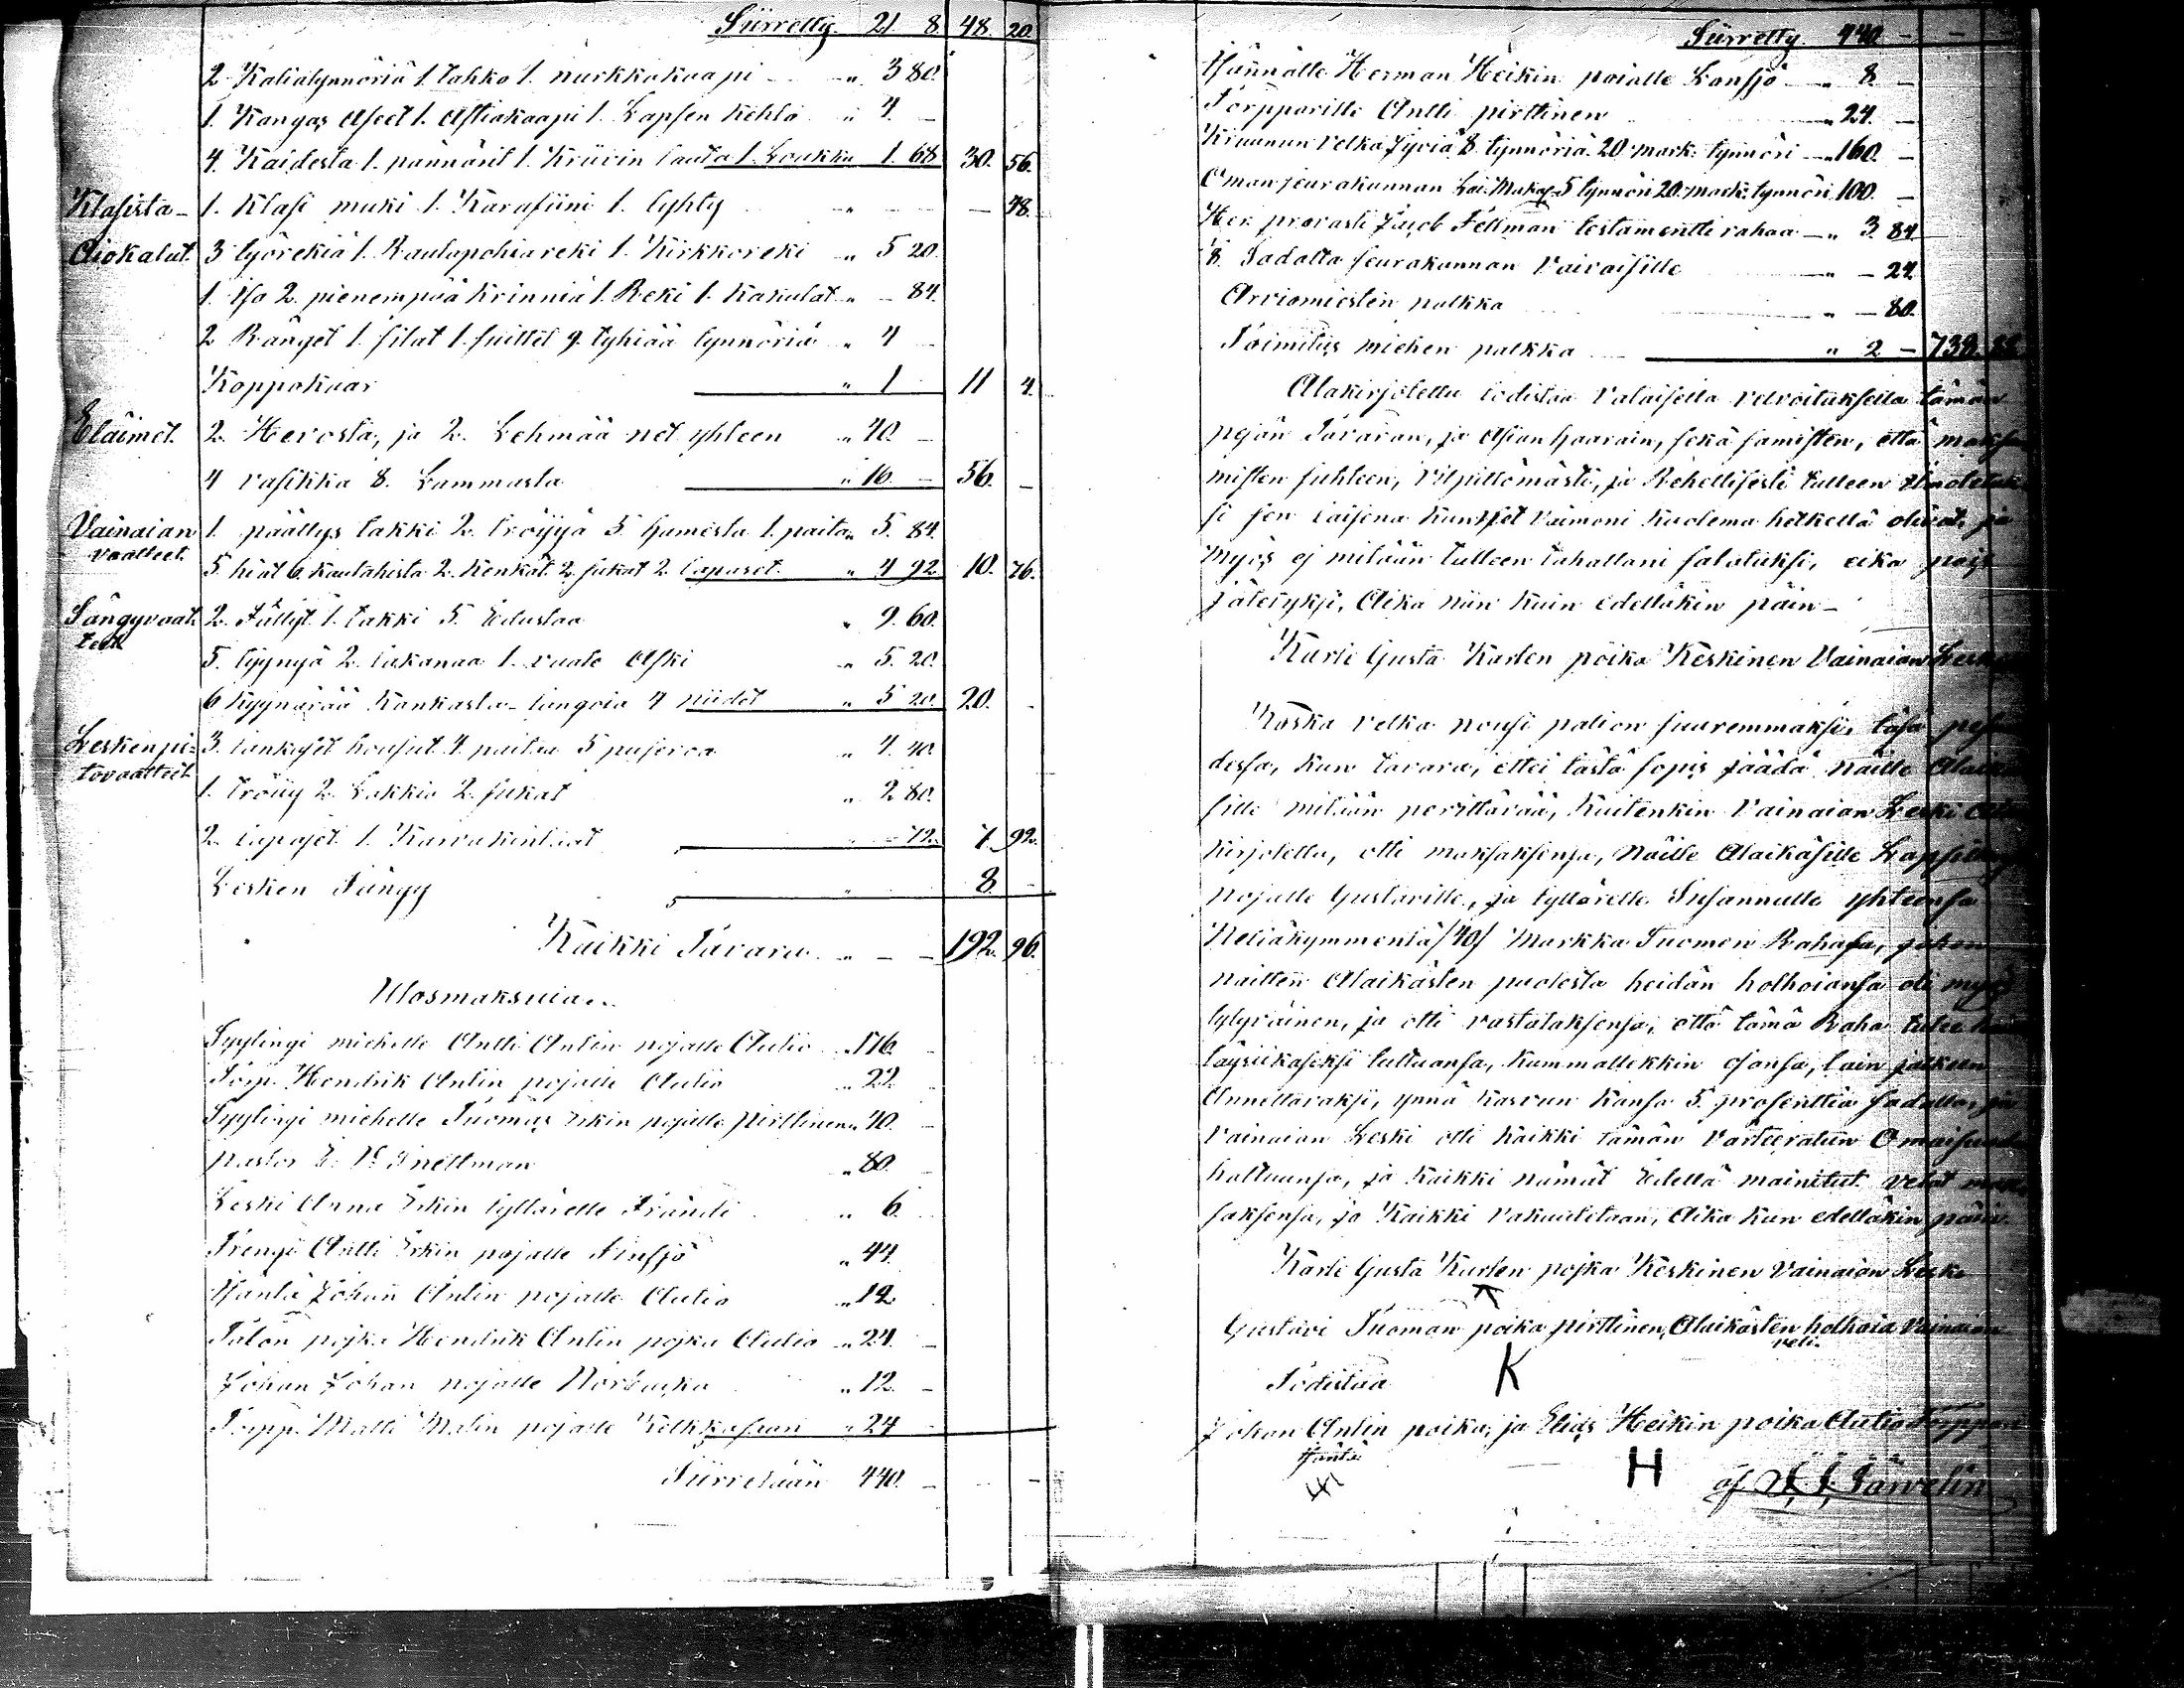 Siirretty 21 8. 48. 20.
2 Kaliatynnöriä 1. tahko 1. nurkkakaapi „ 3 80.
1. Kangas Aseet 1. Astiakaapi 1. Lapsen kehto „ 4. –
4. Kaidesta 1. pännärit 1. Kriivin lauta 1. Loukku 1. 68 30. 56.
Klasista – 1. Klasi muki 1. Karafiini 1. lyhty „ – 48.
Aiokalut. 3 työrekiä 1. Raulapohiareki 1. Kirkkoreki „ 5 20.
1. iso 2. pienempää Krinniä 1. Reki 1. Kakulat „ – 84.
2 Ränget 1. silat 1. suittet 9. tyhiää tynnöriä „ 4
Koppakuar „ 1 – 11 4.
Eläimet. 2. Hevosta, ja 2. Lehmää net yhteen „ 40. –
4 vasikka 8. Lammasta „ 16. – 56. –
Vainaian 1. päällys takki 2. tröyyä 5 hamesta 1. paita „ 5. 84.
vaatteet. 5. hiat 6. kaulahista 2. Kenkät 2. sukat 2. lapaset. „ 4 92. 10. 76.
Sängyvaat 2. Fällyt 1. takki 5. Edustaa „ 9. 60.
teet 5. tyynyä 2. lakanaa 1. vaate Aski „ 5. 20.
6 Kyynärää Kankasta – langoia 4 niidet „ 5 20. 20. –
Leskenpi= 3. lankaset housut 4. paitaa 5 puseroa „ 4. 40.
tovaatteet. 1. tröiiy 2. Lakkia 2. sukat „ 2 80.
2. lapaset 1. Karvakintaat „ – 72. 7. 92.
Lesken Sängy „ 8. –
Kaikki Tavara „ – – 192. 96.
Ulosmaksuia
Syylingi miehelle Antti Antin pojalle Autio „ 176.
Torp. Hendrik Antin pojalle Autio „ 22
Syylingi miehelle Tuomas Erkin pojalle pirttinen „ 40. –
pastor Snellman „ 80.
Leski Anna Erkin tyttärelle „ 6.
Trengi Antti Erkin pojalle „ 44.
Isäntä Johan Antin pojalle Autio „ 12
Talon pojka Hendrik Antin pojka Autio „ 24. –
Johan Johan pojalle Norbacka „ 12. –
Torpp. Matti Matin pojalle „ 24 –
Siirretään 440. – – –
Siirretty 440 – –
Isännälle Herman Heikin poialle Lansjö „ 8. –
Torpparille Antti pirttinen „ 24. –
Kruunun velka Jyviä 8 tynnöriä 20 mark: tynnöri „ 160. –
Oman seurakunnan Lai: Makas: 5 tynnöri 20. mark: tynnöri 100. –
Her. provasti Jacob Fellman testamentti rahaa „ 3. 84
Sadatta seurakunnan Vaivaisille „ – 24.
Arviomiesten palkka „ – 80.
Toimitus miehen palkka „ 2 – 738. 88.
Alakirjotettu todistaa Valaisella velvoituksella tämän
pejän Tavaran, ja Asian haarain, sekä samisten, että maksa
misten suhteen, Vilpittömästi, ja Rehellisesti tulleen
si sen laisena kun net Vaimoni kuolema hetkellä olivat, ja
myös ej mitään tulleen tahallani salatuksi, eikä pois
jätetyksi, Aika niin kuin edelläkin päin –
Karli Gusta Karlen poika Keskinen Vainaian Leski
Koska velka nousi palion suuremmaksi, täsä pesän
desta, kun tavara, ettei tästä sopis jäädä näille Alaikä
sille mitään perittävää, Kuitenkin Vainaian Leski Ala
kirjotettu, otti maksaksensa, näille Alaikäsille Lapsille
Pojalle Gustaville, ja tyttärelle Susannalle yhteensä
Neliäkymmentä /40/ Markka Suomen Rahasa, johon
näitten Alaikästen puolesta heidän holhoiansa oli myös
tytyväinen, ja otti vastataksensa, että tämä Raha tulee
täysiikäseksi tultuansa, kummallekkin osansa, lain jälkeen
Annettavaksi, ynnä kasvun kansa 5. prosenttia sadalta, ja
Vainaian Leski otti kaikki tämän värteeratun Omaisuude
haltuunsa, ja kaikki nämät Edellä mainitut velat mak
saksensa, ja Kaikki vakuutetaan, Aika kun edelläkin päin.
Karli Gusta Karlen pojka Keskinen Vainaian Leski
Gustavi Tuoman poika pirttinen, Alaikästen holhoia Vainaian
veli.
Todistaa K
Johan Antin poika, ja Elias Heikin poika Autio Torppari
Isäntä
H
af